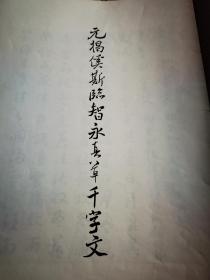 元揭傒斯臨智永真草千字文